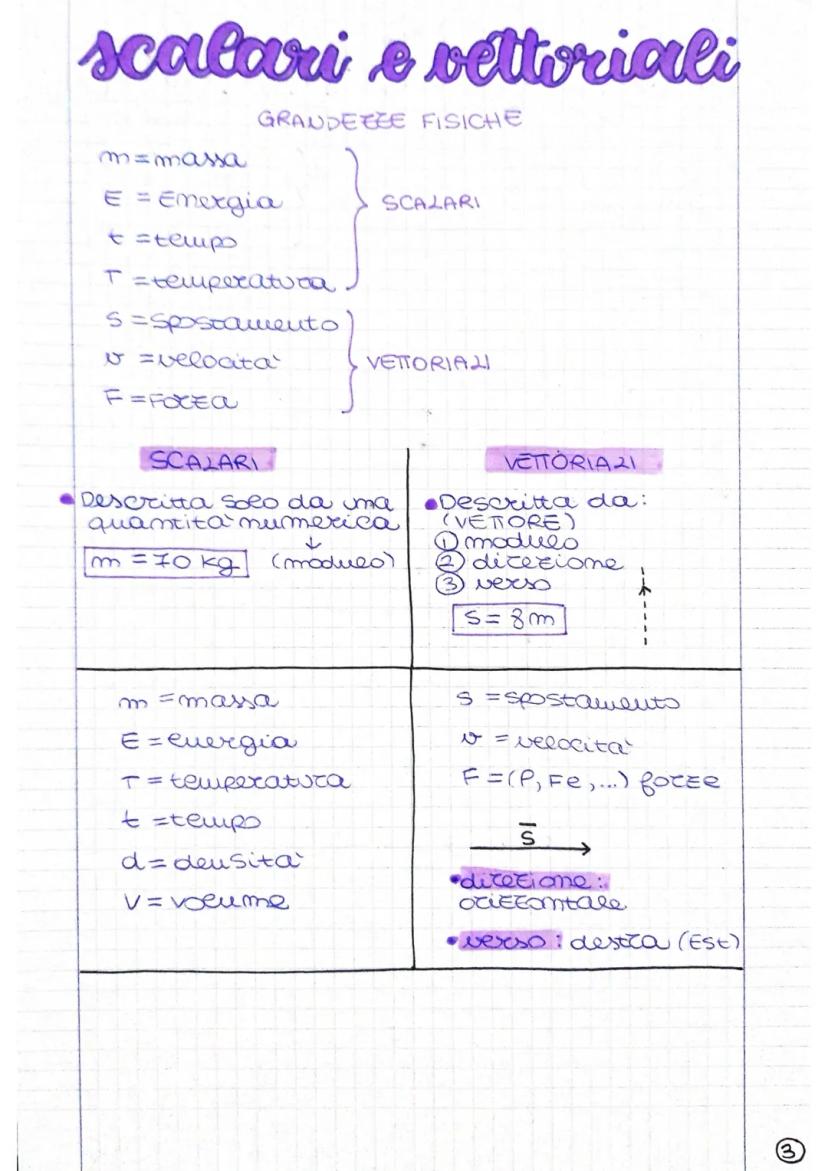 scalari e vettoriali
GRANDEZZE FISICHE
m = massa
E = Energia
t = tempo
T = temperatura
SCALARI
S = Spostamento
v = velocità
F = Forza
VETTORIALI
SCALARI
• Descritta solo da una
quantità numerica
↓
m = 70 kg (modulo)
VETTORIALI
• Descritta da:
(VETTORE)
① modulo
② direzione
③ verso
S = 8m
m = massa
E = energia
T = temperatura
t = tempo
d = densità
V = volume
s = spostamento
v = velocità
F = (P, Fe, ...) forze
s̅
• direzione:
orizzontale
• verso: destra (Est)
3